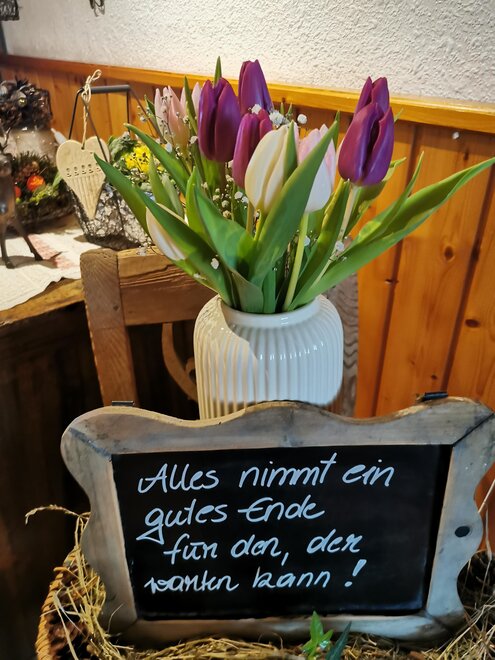 Alles nimmt ein
gutes Ende
für den, der
warten kann!